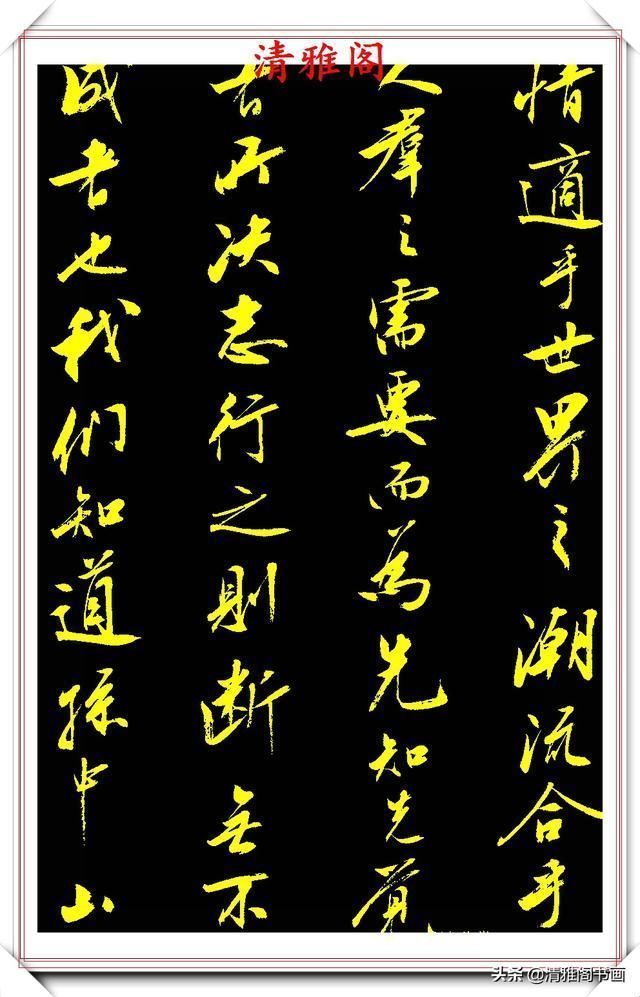 清雅阁
情適乎世界之潮流合乎
人羣之需要而為先知先覚
者所决志行之則断無不
成者也我们知道孫中山
头条@清雅阁书画